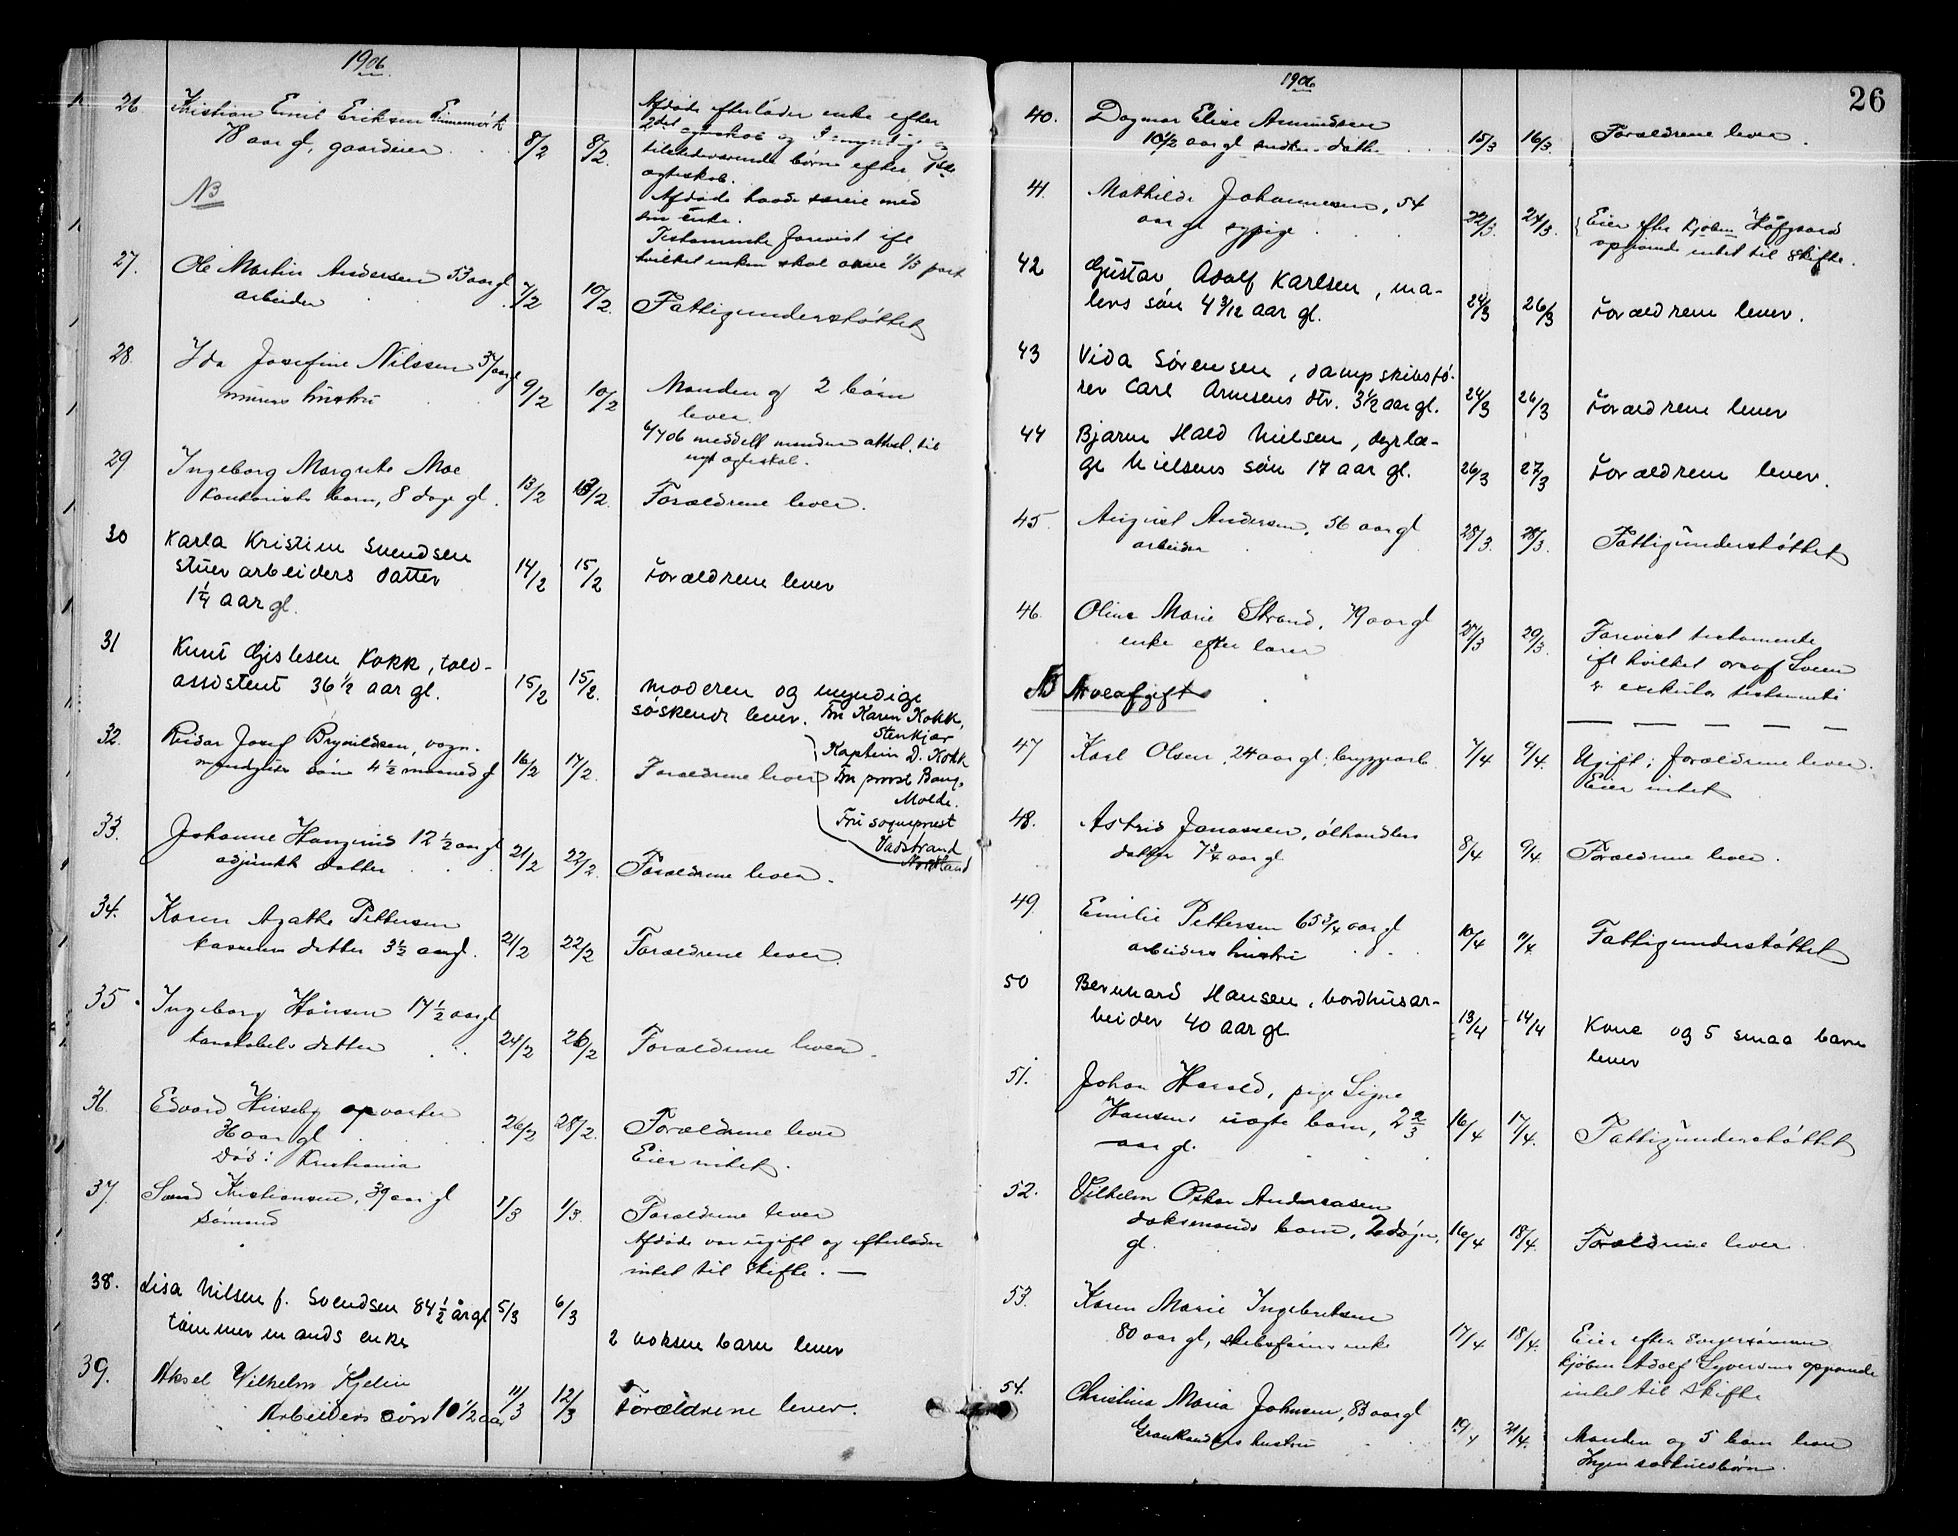 1906
26. Kristian Emil Eriksen
78 aar gl, gaardeier 8/2 8/2.
Afdøde efterlader enke efter
2det egteskab og myndige og
tilstedeværende børn efter 1ste
egteskab.
Afdøde havde særeie med
sin enke.
Testamente forevist ifl
hvilket enken skal arve 1/3 part
NB
27. Ole Martin Andersen 53 aar gl
arbeider 7/2 10/2. Fattigunderstøttet
28. Ida Josefine Nilssen 37 aar gl
murers hustru 9/2 10/2 Manden og 2 børn
lever
6/4 06 meddelt manden attest til
nyt egteskab.
29 Ingeborg Margrete Moe
kontorists barn, 8 dage gl. 13/2 13/2. Forældrene lever.
30 Karla Kristine Svendsen
stuerarbeiders datter 14/2 15/2 Forældrene lever
1 1/4 aar gl.
31 Knut Gislesen Kokk, told-
assistent 36 1/2 aar gl. 15/2 15/2. Moderen og myndige
søskende lever. Fru Karen Kokk,
Stenkjær
Kaptein D. Kokk
Fru provst Bang,
Molde.
Fru sogneprest
Vadstrand
Nordland
32. Reidar Josef Brynildsen, vogn-
søn 4 1/2 maaned gl 16/2 17/2. Forældrene lever
33. Johanne 12 1/2 aar gl
adjunkt datter 21/2 22/2. Forældrene lever.
34. Karen Agathe Pettersen
datter 3 1/2 aar gl. 21/2 22/2 Forældrene lever.
35. Ingeborg Hansen 17 1/2 aar gl
konstabels datter 24/2 26/2 Forældrene lever.
36. Edvard Huseby opvarter
aar gl 26/2 28/2. Forældrene lever
Død: Kristiania Eier intet.
37. Kristiansen, 39 aar gl
sømand 1/3 1/3. Forældrene lever
Afdøde var ugift og efterlader
intet til skifte. —
38. Lisa Nilsen f. Svendsen 84 1/2 år gl 5/3 6/3
tømmermands enke 2 voksne barn lever
39. Aksel Vilhelm Kjelin
Arbeiders søn 10 1/2 aar 11/3 12/3 Forældrene lever.
1906
26
40. Dagmar Elise Amundsen
10 1/2 aar gl datter 15/3 16/3. Forældrene lever.
41. Mathilde Johannesen, 54
aar gl sypige 22/3. 24/3. Eier efter kjøbm Hofgaard
opgivende intet til skifte.
42 Gustav Adolf Karlsen, ma-
lers søn 4 3/12 aar gl. 24/3 26/3 Forældrene lever.
43 Vida Sørensen, dampskibsfø-
rer Carl Arnesens dtr. 3 1/2 aar gl. 24/3 26/3 Forældrene lever
44 Bjarne Hald Nielsen, dyrlæ-
ge Nielsens søn 17 aar gl. 26/3 27/3 Forældrene lever.
45. August Andersen, 56 aar gl
arbeider 28/3. 28/3. Fattigunderstøttet
46. Oline Marie Strand, 79 aar gl
enke efter 27/3 29/3. Forevist testamente
ifl hvilket
testamente
NB Arveafgift
47 Karl Olsen, 24 aar gl; bryggearb. 7/4 9/4. Ugift; forældrene lever.
Eier intet
48. Astrid Jonassen, ølhandlers
datter 7 3/4 aar gl 8/4 9/4. Forældrene lever.
49. Emilie Pettersen 65 3/4 aar gl
arbeiders hustru 10/4 11/4. Fattigunderstøttet
50 Bernhard Hansen, bordhusar-
beider 40 aar gl 13/4 14/4 Kone og 5 smaa barn
lever
51. Johan Harald, pige Signe
Hansens uægte barn, 2 2/3 16/4 17/4. Fattigunderstøttet
aar gl.
52. Vilhelm Oskar Andreasen
doksmands barn, 2 døgn 16/4 18/4. Forældrene lever.
gl.
53. Karen Marie Ingebretsen
80 aar gl, skibsførers enke 17/4 18/4. Eier efter
kjøbm Adolf Syvertsens opgivende
intet til skifte
54. Christine Marie Johnsen, 83 aar gl
hustru 19/4 21/4. Manden og 5 barn lever
Ingen særkuldsbørn.